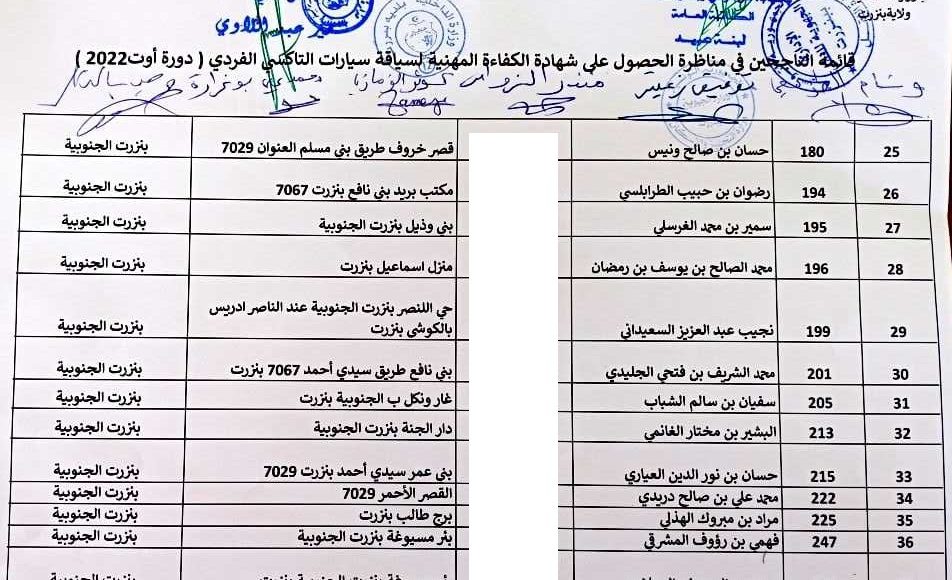 ولاية بنزرت
الكاتبة العامة
قائمة الناجحين في مناظرة الحصول على شهادة الكفاءة المهنية لسياقة سيارات التاكسي الفردي ( دورة أوت2022 )
25 180 حسان بن صالح ونيس قصر خروف طريق بني مسلم العنوان 7029 بنزرت الجنوبية
26 194 رضوان بن حبيب الطرابلسي مكتب بريد بني نافع بنزرت 7067 بنزرت الجنوبية
27 195 سمير بن محمد الغرسلي بني وذيل بنزرت الجنوبية بنزرت الجنوبية
28 196 محمد الصالح بن يوسف بن رمضان منزل اسماعيل بنزرت بنزرت الجنوبية
29 199 نجيب عبد العزيز السعيداني حي اللنصر بنزرت الجنوبية عند الناصر ادريس
بالكوشي بنزرت بنزرت الجنوبية
30 201 محمد الشريف بن فتحي الجليدي بني نافع طريق سيدي أحمد 7067 بنزرت بنزرت الجنوبية
31 205 سفيان بن سالم الشباب غار ونكل ب الجنوبية بنزرت بنزرت الجنوبية
32 213 البشير بن مختار الغانمي دار الجنة بنزرت الجنوبية بنزرت الجنوبية
33 215 حسان بن نور الدين العياري بني عمر سيدي أحمد بنزرت 7029 بنزرت الجنوبية
34 222 محمد علي بن صالح دريدي القصر الأحمر 7029 بنزرت الجنوبية
35 225 مراد بن مبروك الهذلي برج طالب بنزرت بنزرت الجنوبية
36 247 فهمي بن رؤوف المشرقي بئر مسيوغة بنزرت الجنوبية بنزرت الجنوبية